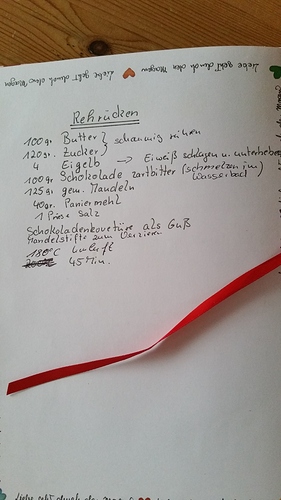 Liebe geht durch den Magen Liebe geht durch den Magen Liebe
Rehrücken
100gr. Butter } schaumig rühren
120gr. Zucker }
4 Eigelb → Eiweiß schlagen u. unterheben
100gr. Schokolade zartbitter (schmelzen im Wasserbad)
125gr. gem. Mandeln
40gr. Paniermehl
1 Prise Salz
Schokoladenkouvetüre als Guß
Mandelstifte zum Verzieren
180°C Umluft
45 Min.